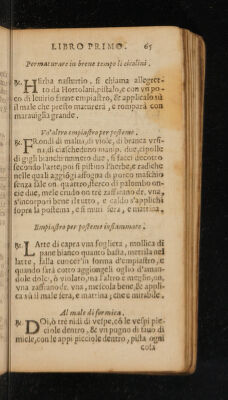 LIBRO PRIMO. 65
Per maturare in breue tempo li cicolini.
℞. HErba nasturtio, si chiama allegret-
to da Hortolani, pistalo, e con vn po
co di leuito sirene empiastro, & applicalo sù
il male che presto maturerà, e romperà con
marauiglia grande.
Vn'altro empiastro per posteme.
℞. FRondi di malua, di viole, di branca vrsi-
na, di ciaschedeno manip. due, cipolle
di gigli bianchi numero due, si facci decotto
secondo l'arte; poi si pistino l'herbe, e radiche
nelle quali aggiogi assogna di porco maschio
senza sale on. quattro, sterco di palombo on-
cie due, mele crudo on. tre zaffrano dr. vna,
s'incorpori bene il tutto, e caldo s'applichi
sopra la postema, e si muti sera, e mattina.
Empiastro per posteme inflammate.
℞. LArte di capra vna foglieta, mollica di
pane bianco quanto basta, mettila nel
latte, falla cuocer in forma d'empiastro, e
quando sarà cotto aggiongeli oglio d'aman-
dole dolc. ò violato, ma l'altro è meglio, on.
vna zaffrano dr. vna, mescola bene, & appli-
ca sù il male sera, e mattina, che è mirabile.
Al male di formica.
℞. DOi, ò tre nidi di vespe, cō le vespi pic-
ciole dentro, & vn pugno di fauo di
miele, con le appi picciole dentro, pista ogni
cosa